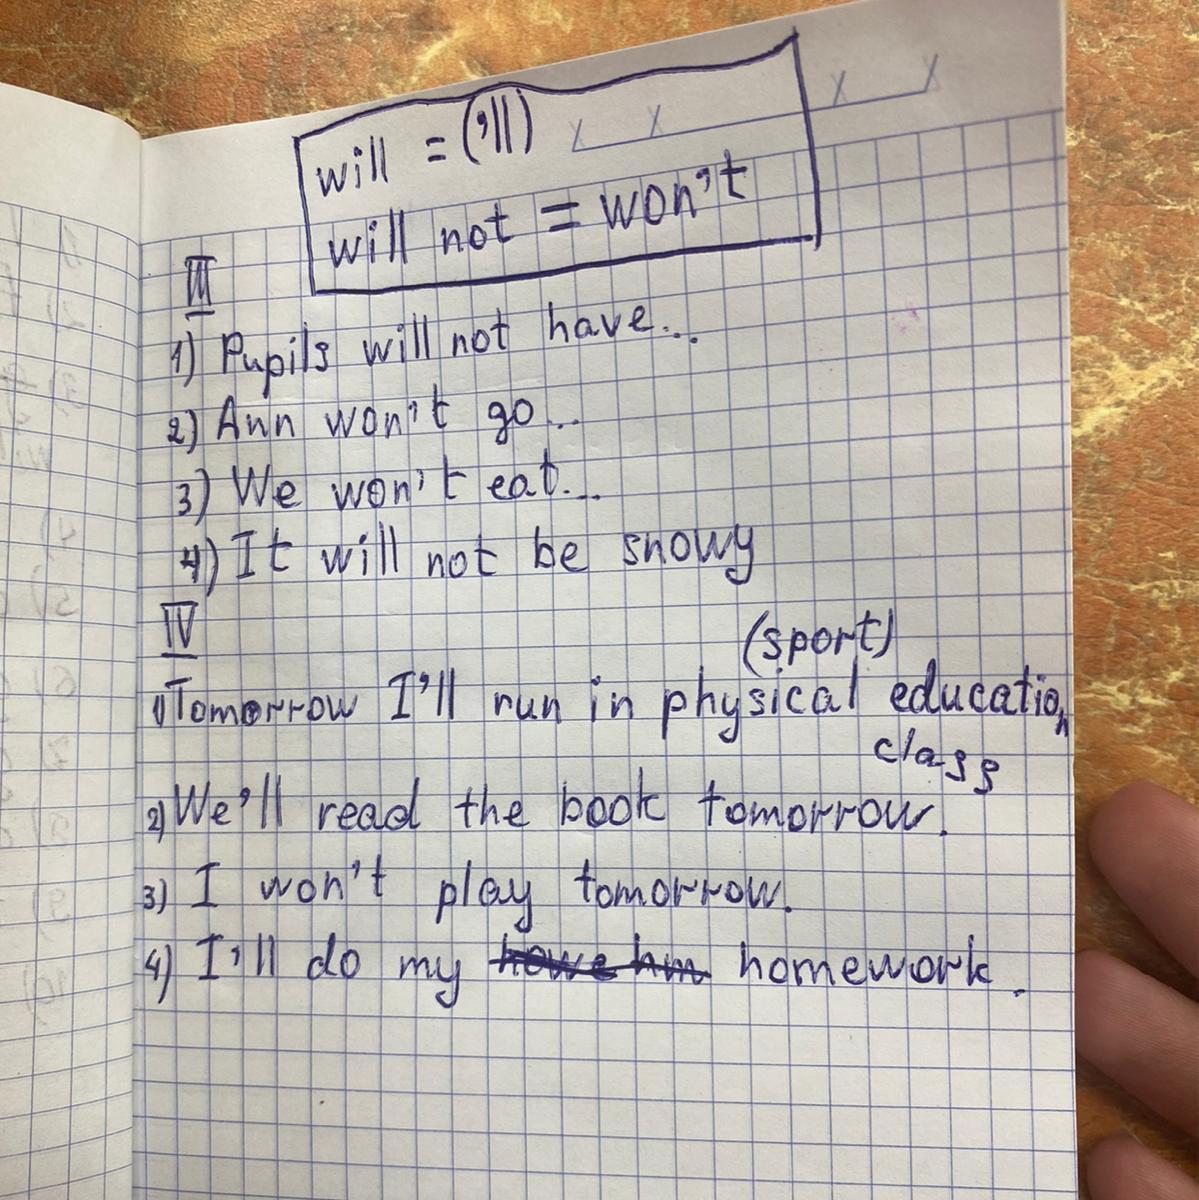 will = ('ll)
will not = won't
III
1) Pupils will not have...
2) Ann won't go...
3) We won't eat...
4) It will not be snowy
IV
(sport)
1) Tomorrow I'll run in physical education
class
2) We'll read the book tomorrow.
3) I won't play tomorrow.
4) I'll do my homework.